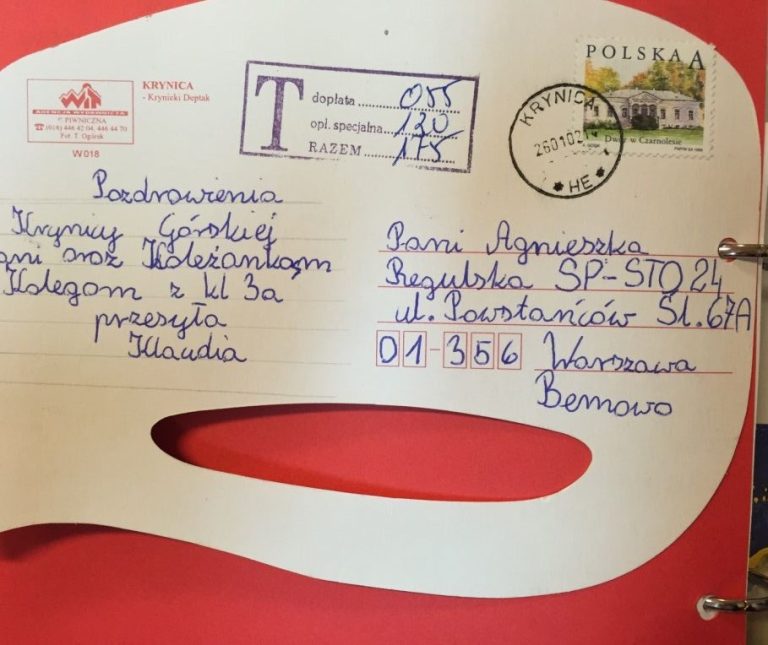 WIT
AGENCJA WYDAWNICZA
PIWNICZNA
☎ (018) 446 42 04, 446 44 70
Fot. T. Ogórek
W 018
KRYNICA
- Krynicki Deptak
T
dopłata 055
opł. specjalna 120
RAZEM 175
POLSKA A
Dwór w Czarnolesie
KRYNICA
260102
* HE *
Pozdrowienia
Krynicy Górskiej
ani oraz Koleżankom
Kolegom z kl 3a
przesyła
Klaudia
Pani Agnieszka
Regulska SP-STO 24
ul. Powstańców Śl. 67A
01-356 Warszawa
Bemowo